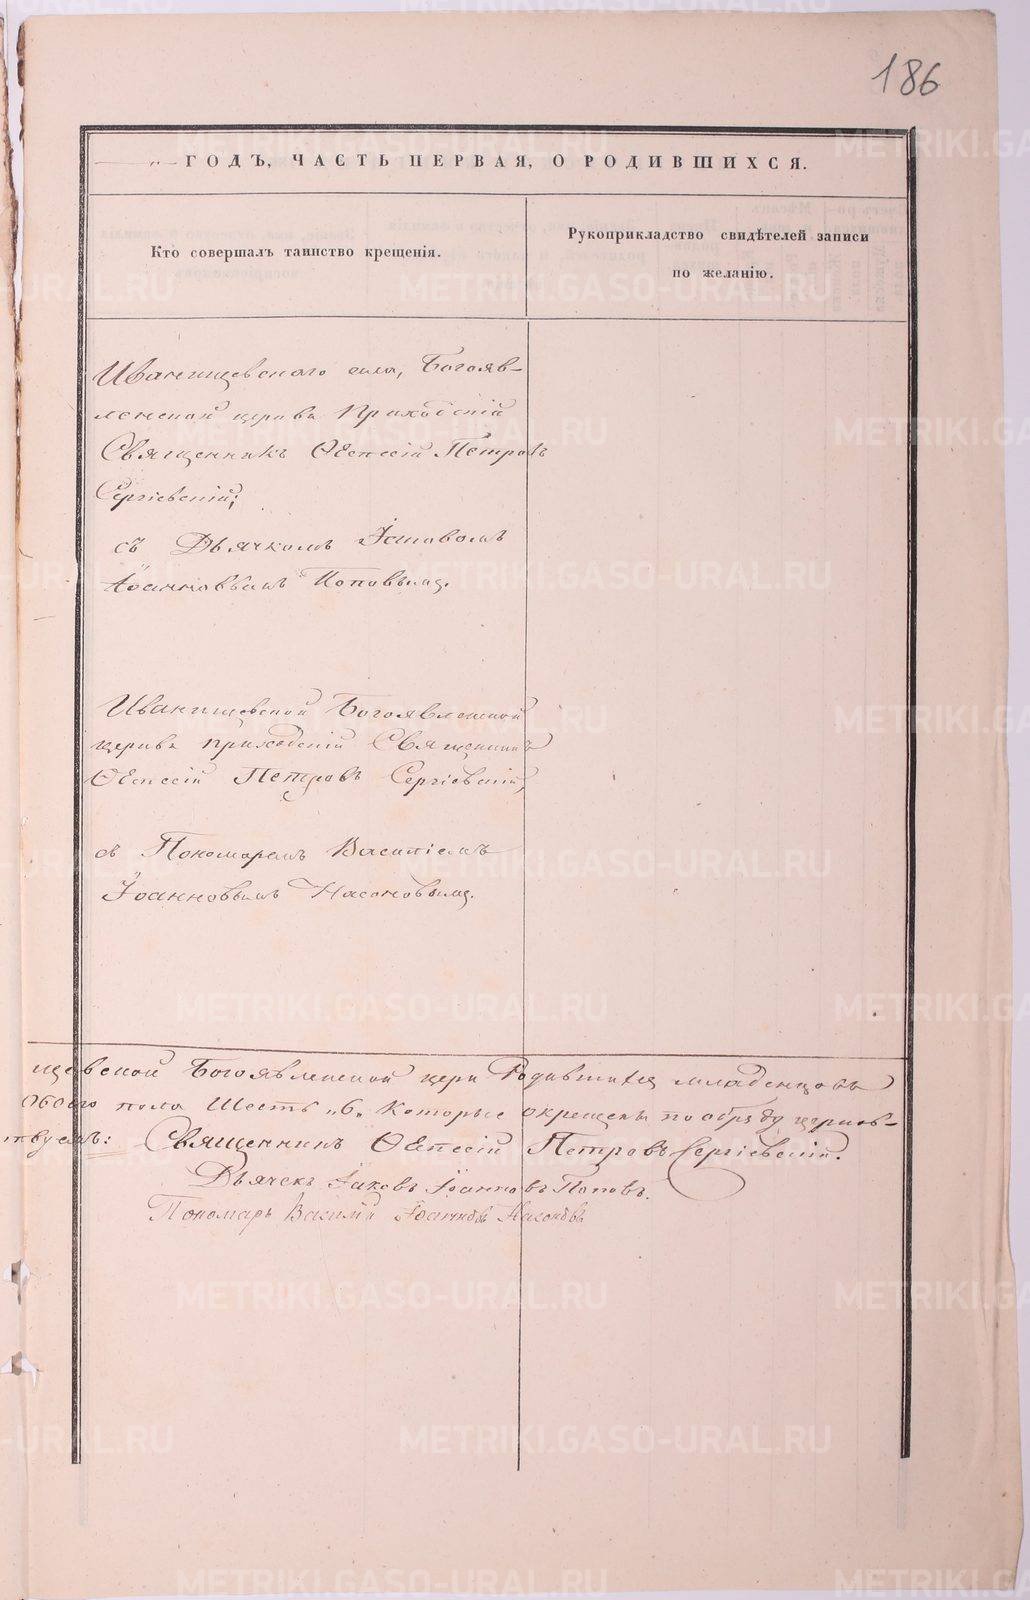 186
„ — ГОДЪ, ЧАСТЬ ПЕРВАЯ, О РОДИВШИХСЯ.
Кто совершалъ таинство крещенія.
Рукоприкладство свидѣтелей записи
по желанію.
Иванищевскаго села, Богояв-
ленской церкви Приходскій
Священникъ Петровъ
Сергіевскій;
съ Дьячкомъ Іаковомъ
Іоанновымъ Поповымъ.
Иванищевской Богоявленской
церкви приходскій Священникъ
Петровъ Сергіевскій,
съ Пономаремъ Василіемъ
Іоанновымъ Насоновымъ.
щевской Богоявленской церк Родившихся младенцовъ
обоего пола Шесть „6„ Которые окрещены по обряду церков-
Священникъ Петровъ Сергіевскій.
Дьячекъ Іаковъ Іоанновъ Поповъ.
Пономарь Василій Іоанновъ Насоновъ
METRIKI.GASO-URAL.RU